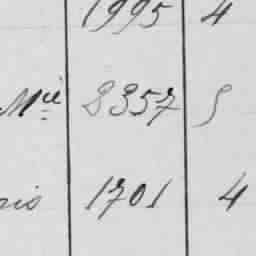 1995 4
Mie 8357 5
rio 1701 4